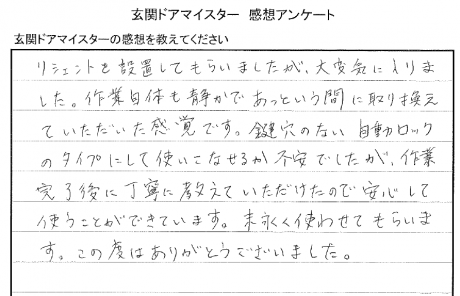 玄関ドアマイスター 感想アンケート
玄関ドアマイスターの感想を教えてください
リシェントを設置してもらいましたが、大変気に入りま
した。作業自体も静かであっという間に取り換え
ていただいた感覚です。鍵穴のない自動ロック
のタイプにして使いこなせるか不安でしたが、作業
完了後に丁寧に教えていただけたので安心して
使うことができています。末永く使わせてもらいま
す。この度はありがとうございました。